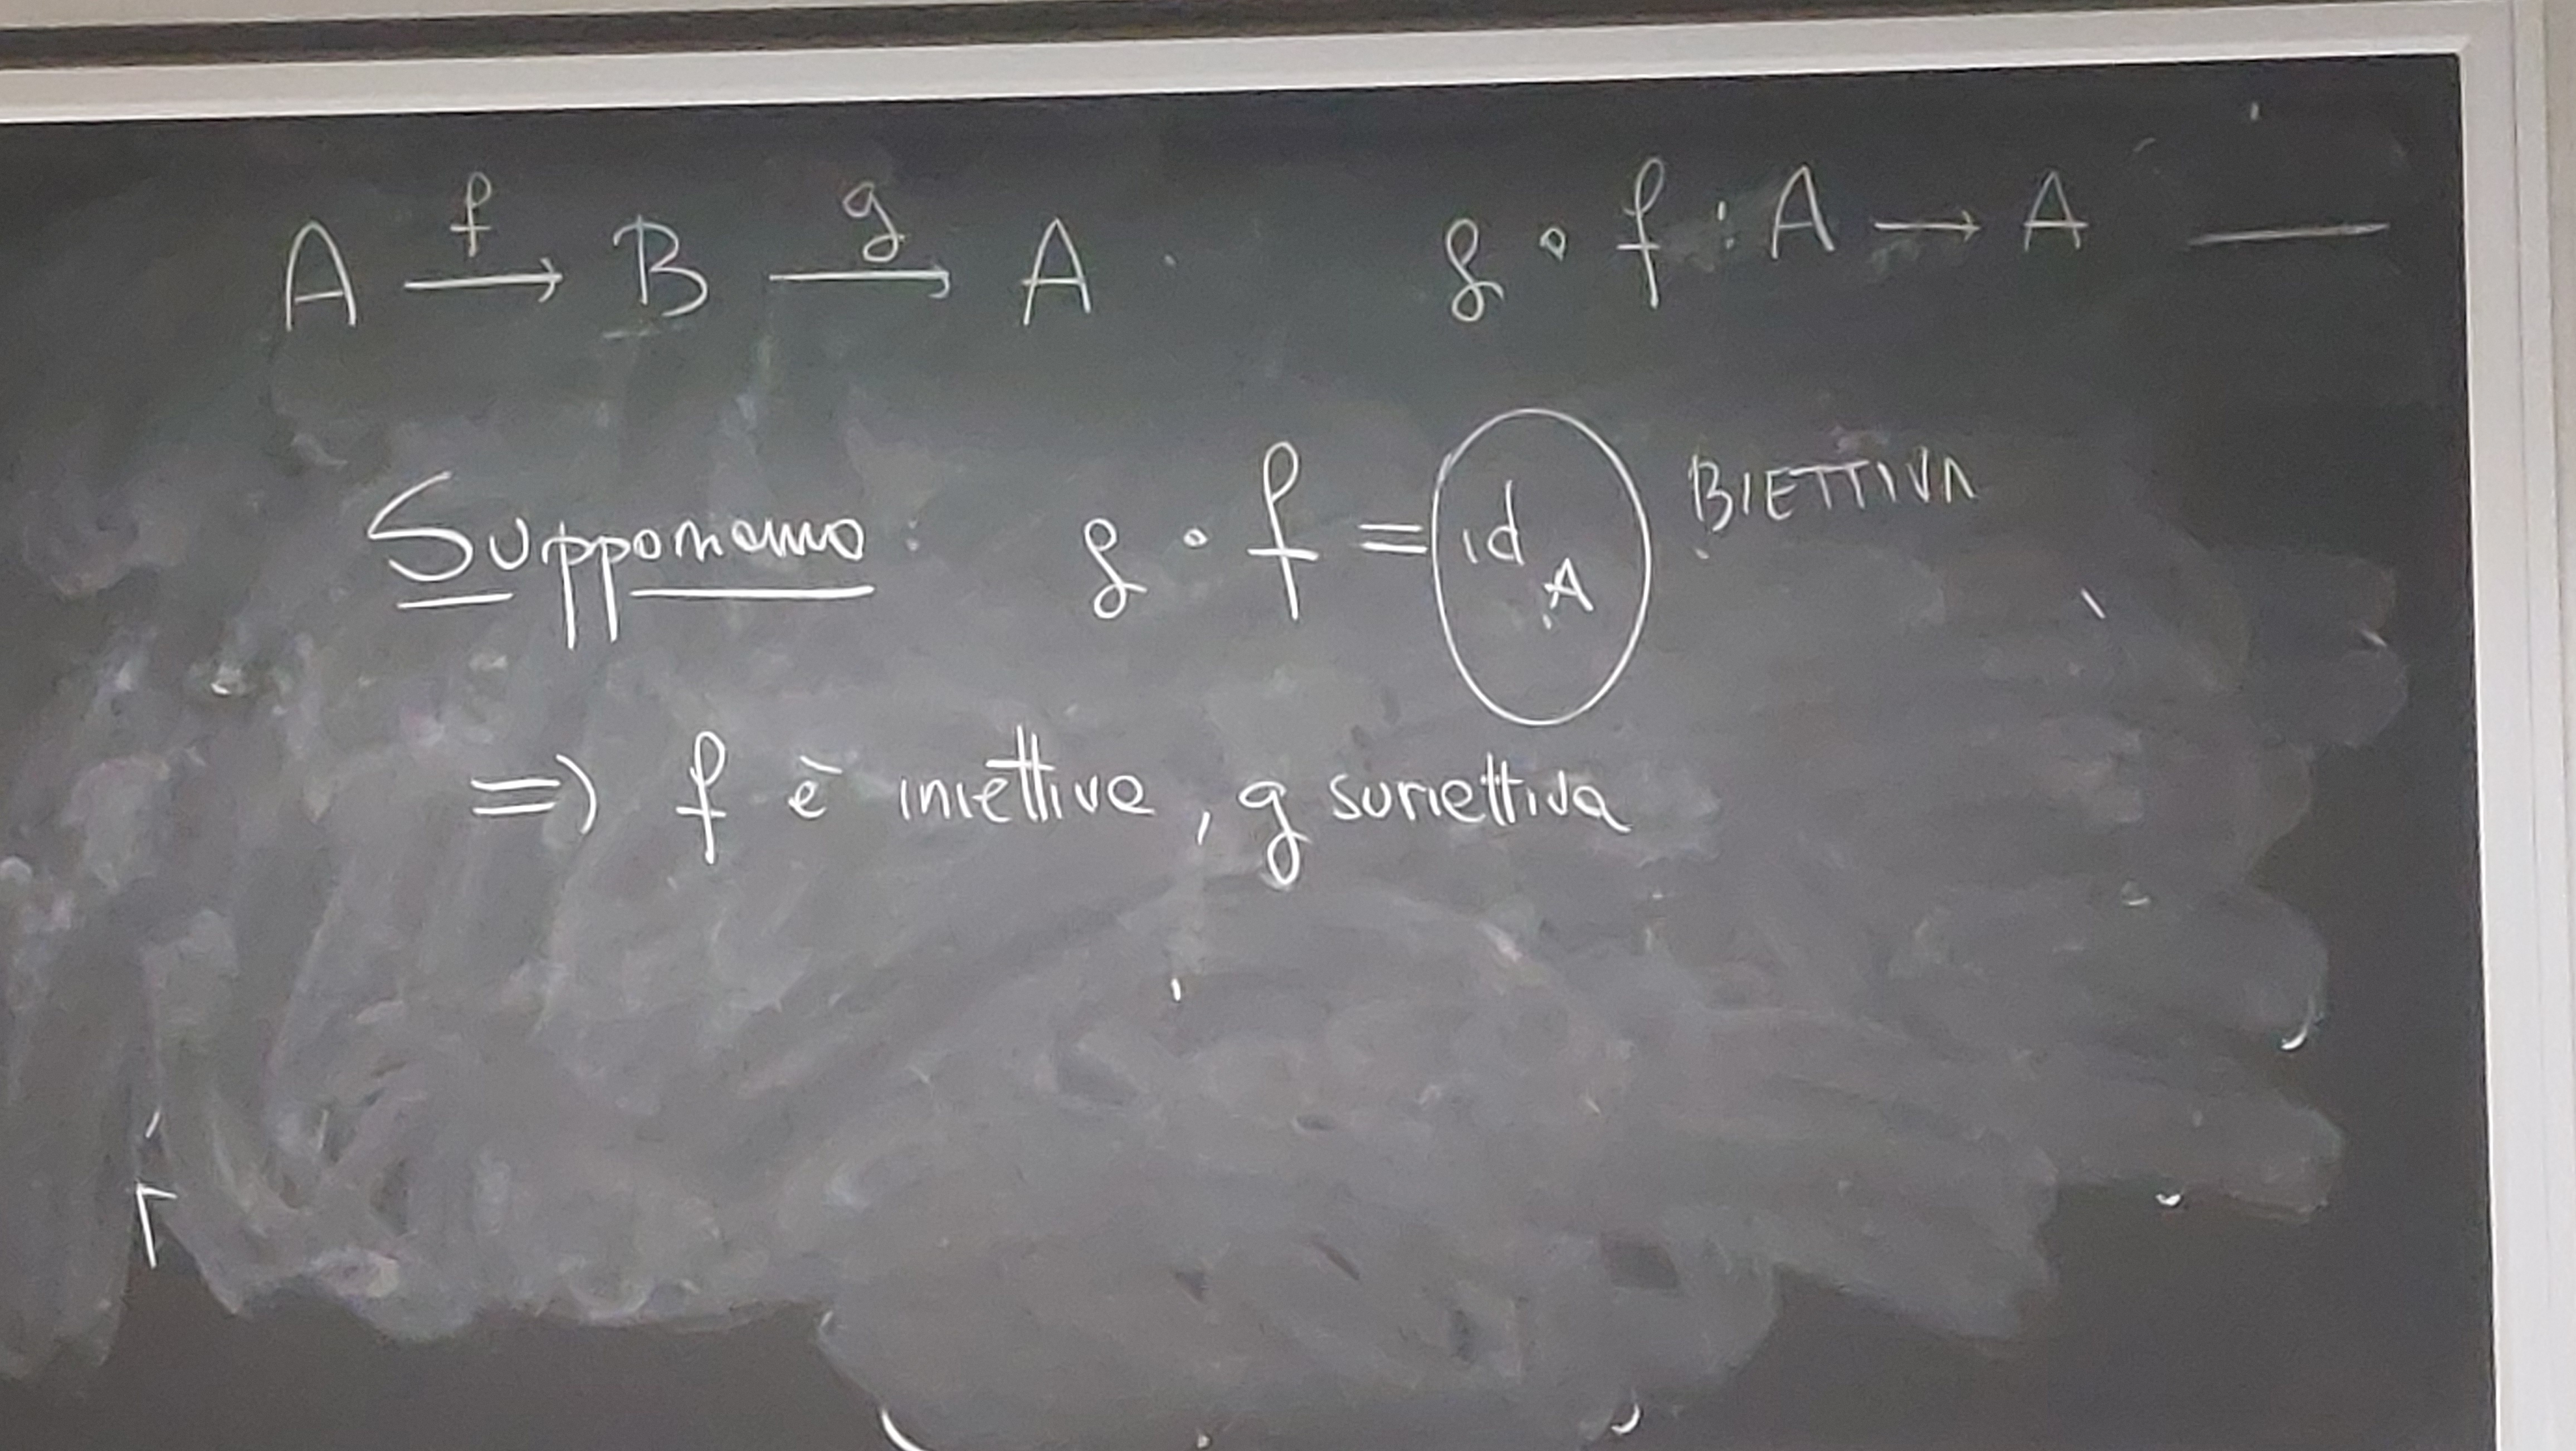 A →f B →g A g ∘ f : A → A
Supponiamo: g ∘ f = id_A BIETTIVA
⇒ f è iniettiva, g suriettiva